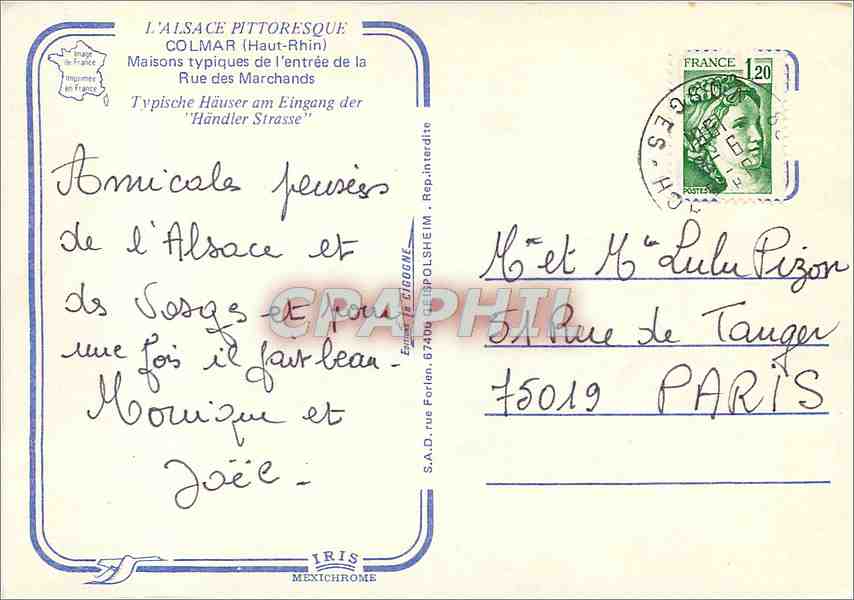 L'ALSACE PITTORESQUE
COLMAR (Haut-Rhin)
Maisons typiques de l'entrée de la
Rue des Marchands
Typische Häuser am Eingang der
"Händler Strasse"
Image
de France
Imprimée
en France
Amicales pensées
de l'Alsace et
des Vosges et pour
une fois il fait beau -
Monique et
Joël -
S.A.D. rue Forlen. 67400 GEISPOLSHEIM - Rep. interdite
Editions La CIGOGNE
CPAPHIL
IRIS
MEXICHROME
FRANCE
1,20
POSTES
VOSGES
Mr et Me Lulu Pizon
51 Rue de Tanger
75019 PARIS